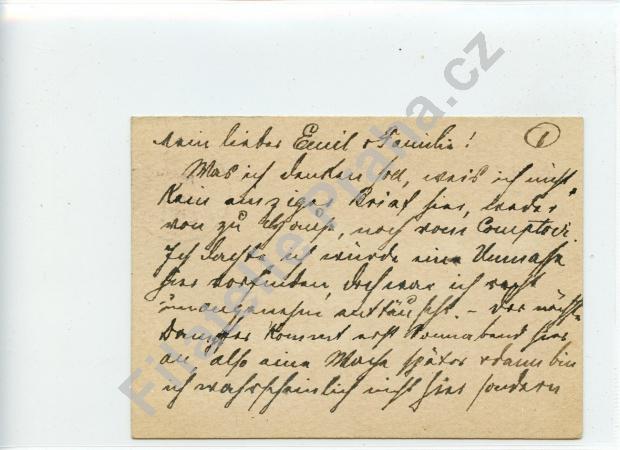 Mein lieber Emil & Familie! 1
Was ich denken soll, weis ich nicht,
Kein einziger Brief hier, weder
von zu Hause, noch vom Comptoir.
Ich dachte ich würde eine Unmasse
hier vorfinden, doch war ich recht
unangenehm enttäuscht. – Der nächste
Dampfer kommt erst Sonnabend hier
an also eine Woche später & dann bin
ich wahrscheinlich nicht hier sondern
Filatelie-Praha.cz